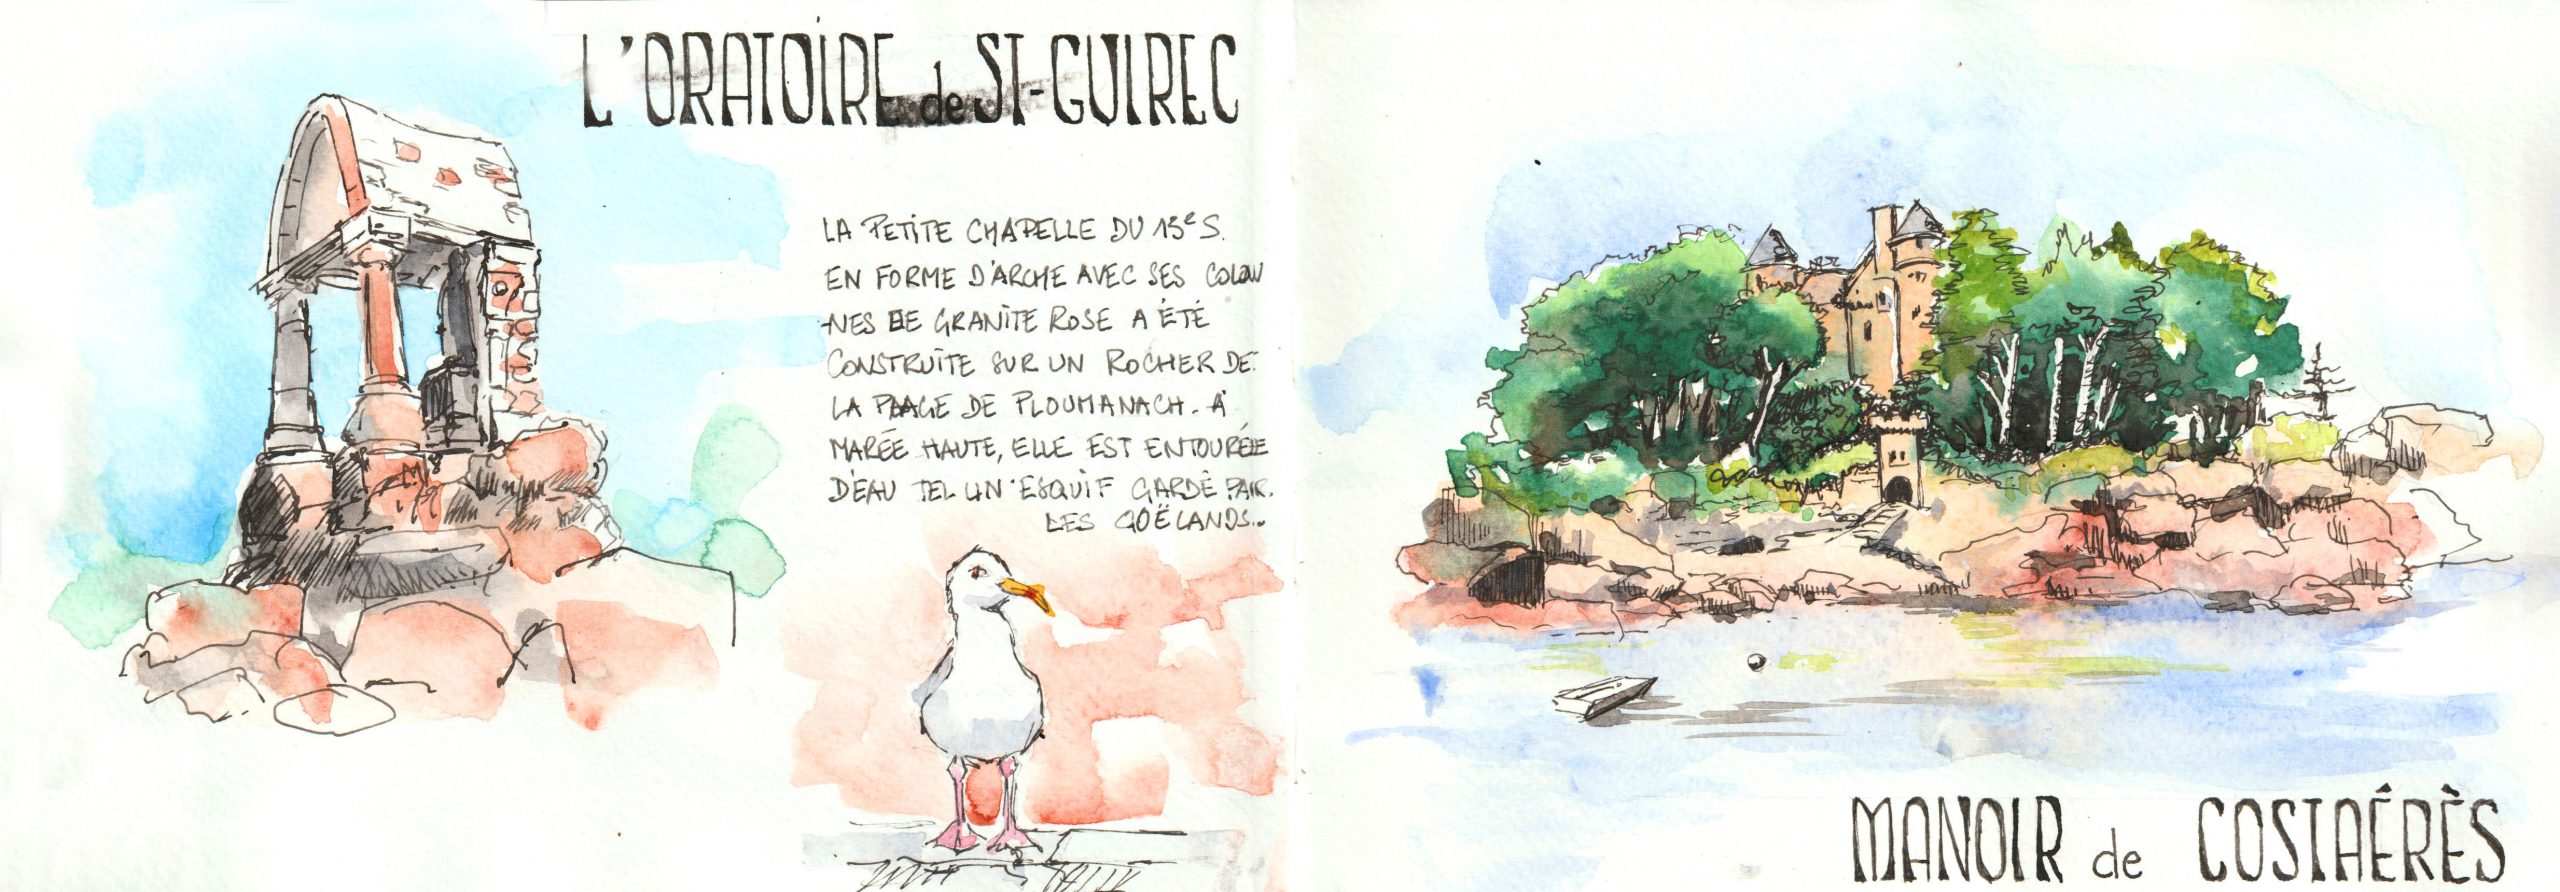 L'ORATOIRE de ST-GUIREC
LA PETITE CHAPELLE DU 13e S.
EN FORME D'ARCHE AVEC SES COLON
NES DE GRANITE ROSE A ÉTÉ
CONSTRUITE SUR UN ROCHER DE
LA PLAGE DE PLOUMANACH. A
MARÉE HAUTE, ELLE EST ENTOURÉE
D'EAU TEL UN ESQUIF GARDÉ PAR
LES GOËLANDS..
MANOIR de COSTAÉRÈS